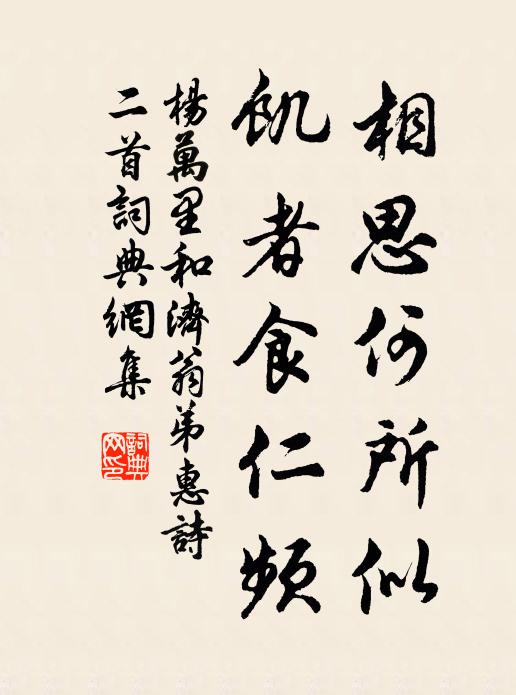 相思何所似
飢者食仁頻
楊萬里和濟翁弟惠詩
二首詞典網集
詞典
网印